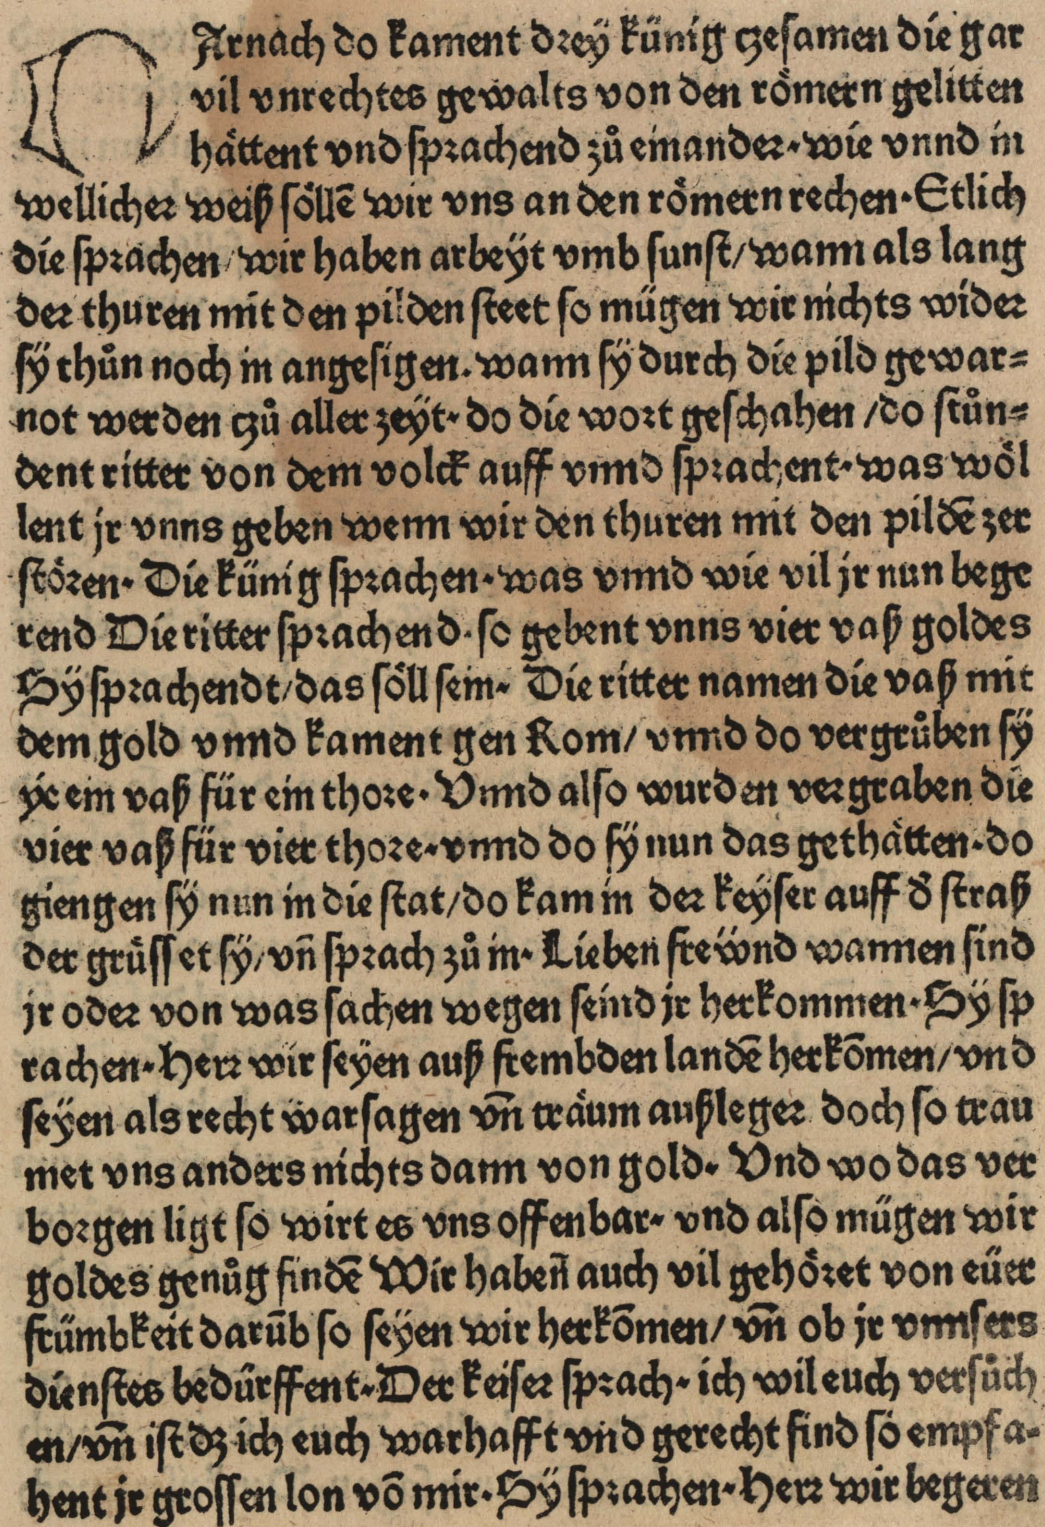 DArnach do kament drey̎ künig czesamen die gar
vil vnrechtes gewalts von den römern gelitten
hättent vnd sprachend zů einander. wie vnnd in
wellicher weiß söllē wir vns an den römern rechen. Etlich
die sprachen/wir haben arbey̎t vmb sunst/wann als lang
der thuren mit den pilden steet so mügen wir nichts wider
sy̎ thůn noch in angesigen. wann sy̎ durch die pild gewar=
not werden czů aller zey̎t. do die wort geschahen/do stůn=
dent ritter von dem volck auff vnnd sprachent. was wöl
lent jr vnns geben wenn wir den thuren mit den pildē zer
stören. Die künig sprachen. was vnnd wie vil jr nun bege
rend Die ritter sprachend. so gebent vnns vier vaß goldes
Sy̎ sprachendt/das söll sein. Die ritter namen die vaß mit
dem gold vnnd kament gen Rom/ vnnd do vergrůben sy̎
ye ein vaß für ein thore. Vnnd also wurden vergraben die
vier vaß für vier thore. vnnd do sy̎ nun das gethätten. do
giengen sy̎ nun in die stat/do kam in der key̎ser auff d̄ straß
der grüsset sy̎/vn̄ sprach zů in. Lieben frewnd wannen sind
jr oder von was sachen wegen seind jr herkommen. Sy̎ sp
rachen. Herr wir sey̎en auß frembden landē herkōmen/vnd
sey̎en als recht warsagen vn̄ träum außleger doch so trau
met vns anders nichts dann von gold. Vnd wo das ver
borgen ligt so wirt es vns offenbar. vnd also mügen wir
goldes genůg findē Wir haben auch vil gehöret von eüer
frümbkeit darūb so sey̎en wir herkōmen/ vn̄ ob jr vnnsers
dienstes bedürffent. Der keiser sprach. ich wil euch versůch
en/vn̄ ist dz ich euch warhafft vnd gerecht find so empfa-
hent jr grossen lon vō mir. Sy̎ sprachen. Herr wir begeren